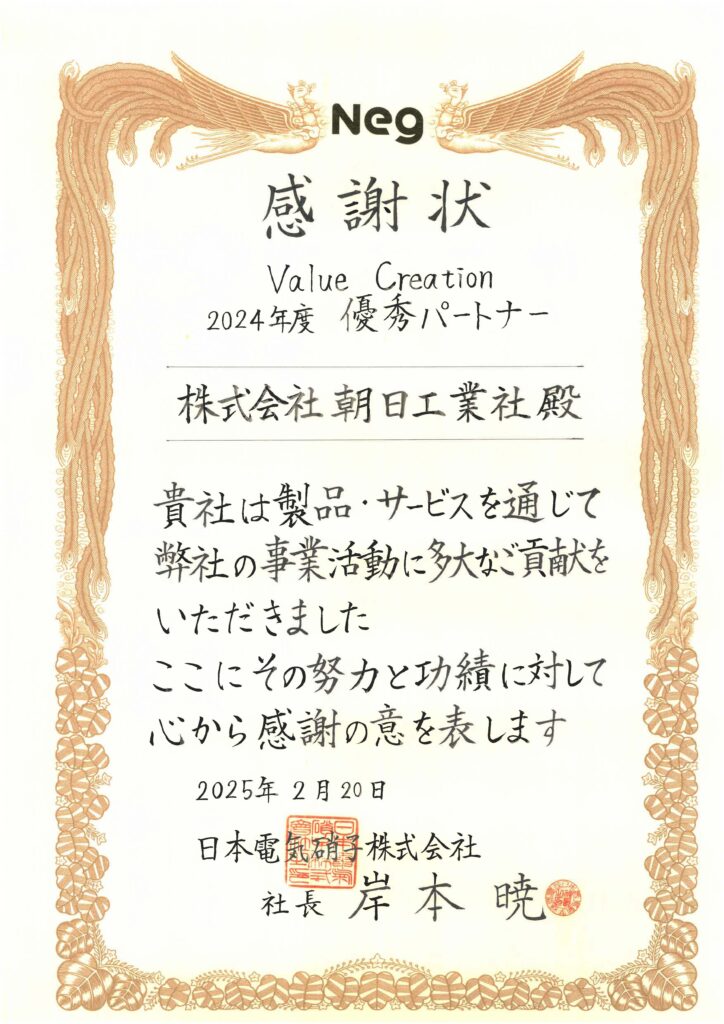 Neg
感謝状
Value Creation
2024年度 優秀パートナー
株式会社 朝日工業社 殿
貴社は製品・サービスを通じて
弊社の事業活動に多大なご貢献を
いただきました
ここにその努力と功績に対して
心から感謝の意を表します
2025年 2月 20日
日本電気硝子株式会社
社長 岸本 暁